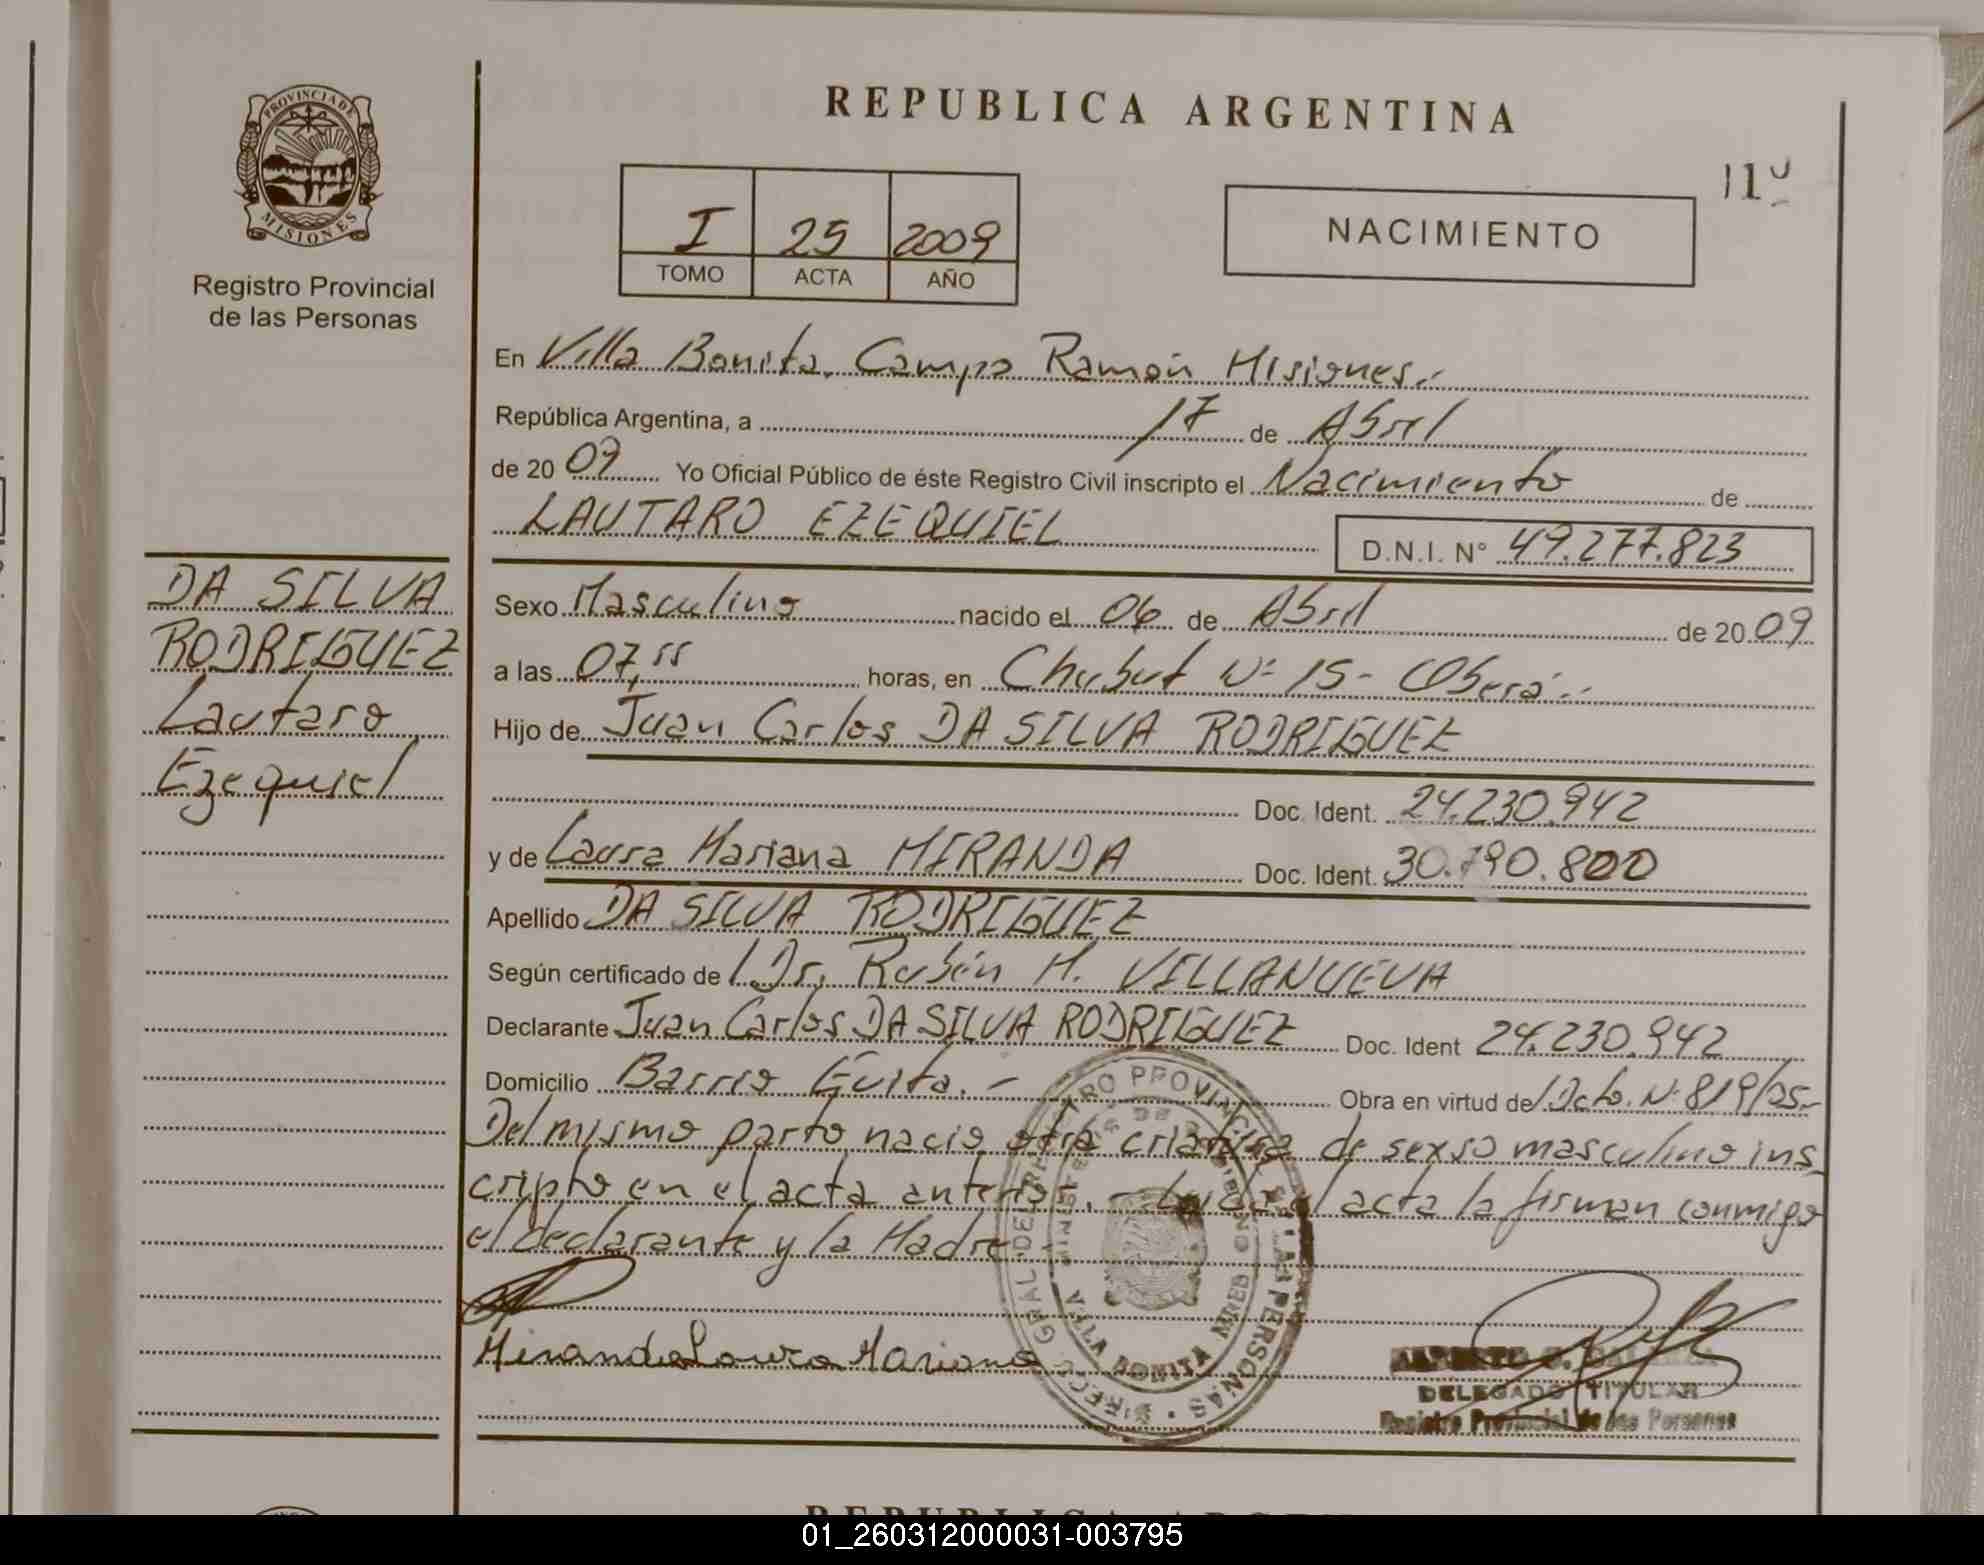 PROVINCIA DE
MISIONES
Registro Provincial
de las Personas
DA SILVA
RODRIGUEZ
Lautaro
Ezequiel
REPUBLICA ARGENTINA
I 25 2009
TOMO ACTA AÑO
NACIMIENTO
En Villa Bonita, Campo Ramón Misiones.-
República Argentina, a 17 de Abril
de 20 09 Yo Oficial Público de éste Registro Civil inscripto el Nacimiento de
LAUTARO EZEQUIEL D.N.I. N° 49.277.823
Sexo Masculino nacido el 06 de Abril de 20 09
a las 07,55 horas, en Chubut N° 15 - Oberá.-
Hijo de Juan Carlos DA SILVA RODRIGUEZ
Doc. Ident. 24.230.942
y de Laura Mariana MIRANDA Doc. Ident. 30.790.800
Apellido DA SILVA RODRIGUEZ
Según certificado de Dr. Rubén H. VILLANUEVA
Declarante Juan Carlos DA SILVA RODRIGUEZ Doc. Ident 24.230.942
Domicilio Barrio Evita.- Obra en virtud de Dcto. N° 819/05.-
Del mismo parto nacio otra criatura de sexso masculino ins
cripto en el acta anterior.- el acta la firman conmigo
el declarante y la Madre
Miranda Laura Mariana
DELEGADO TITULAR
Registro Provincial de las Personas
VILLA BONITA
REPUBLICA
01_260312000031-003795